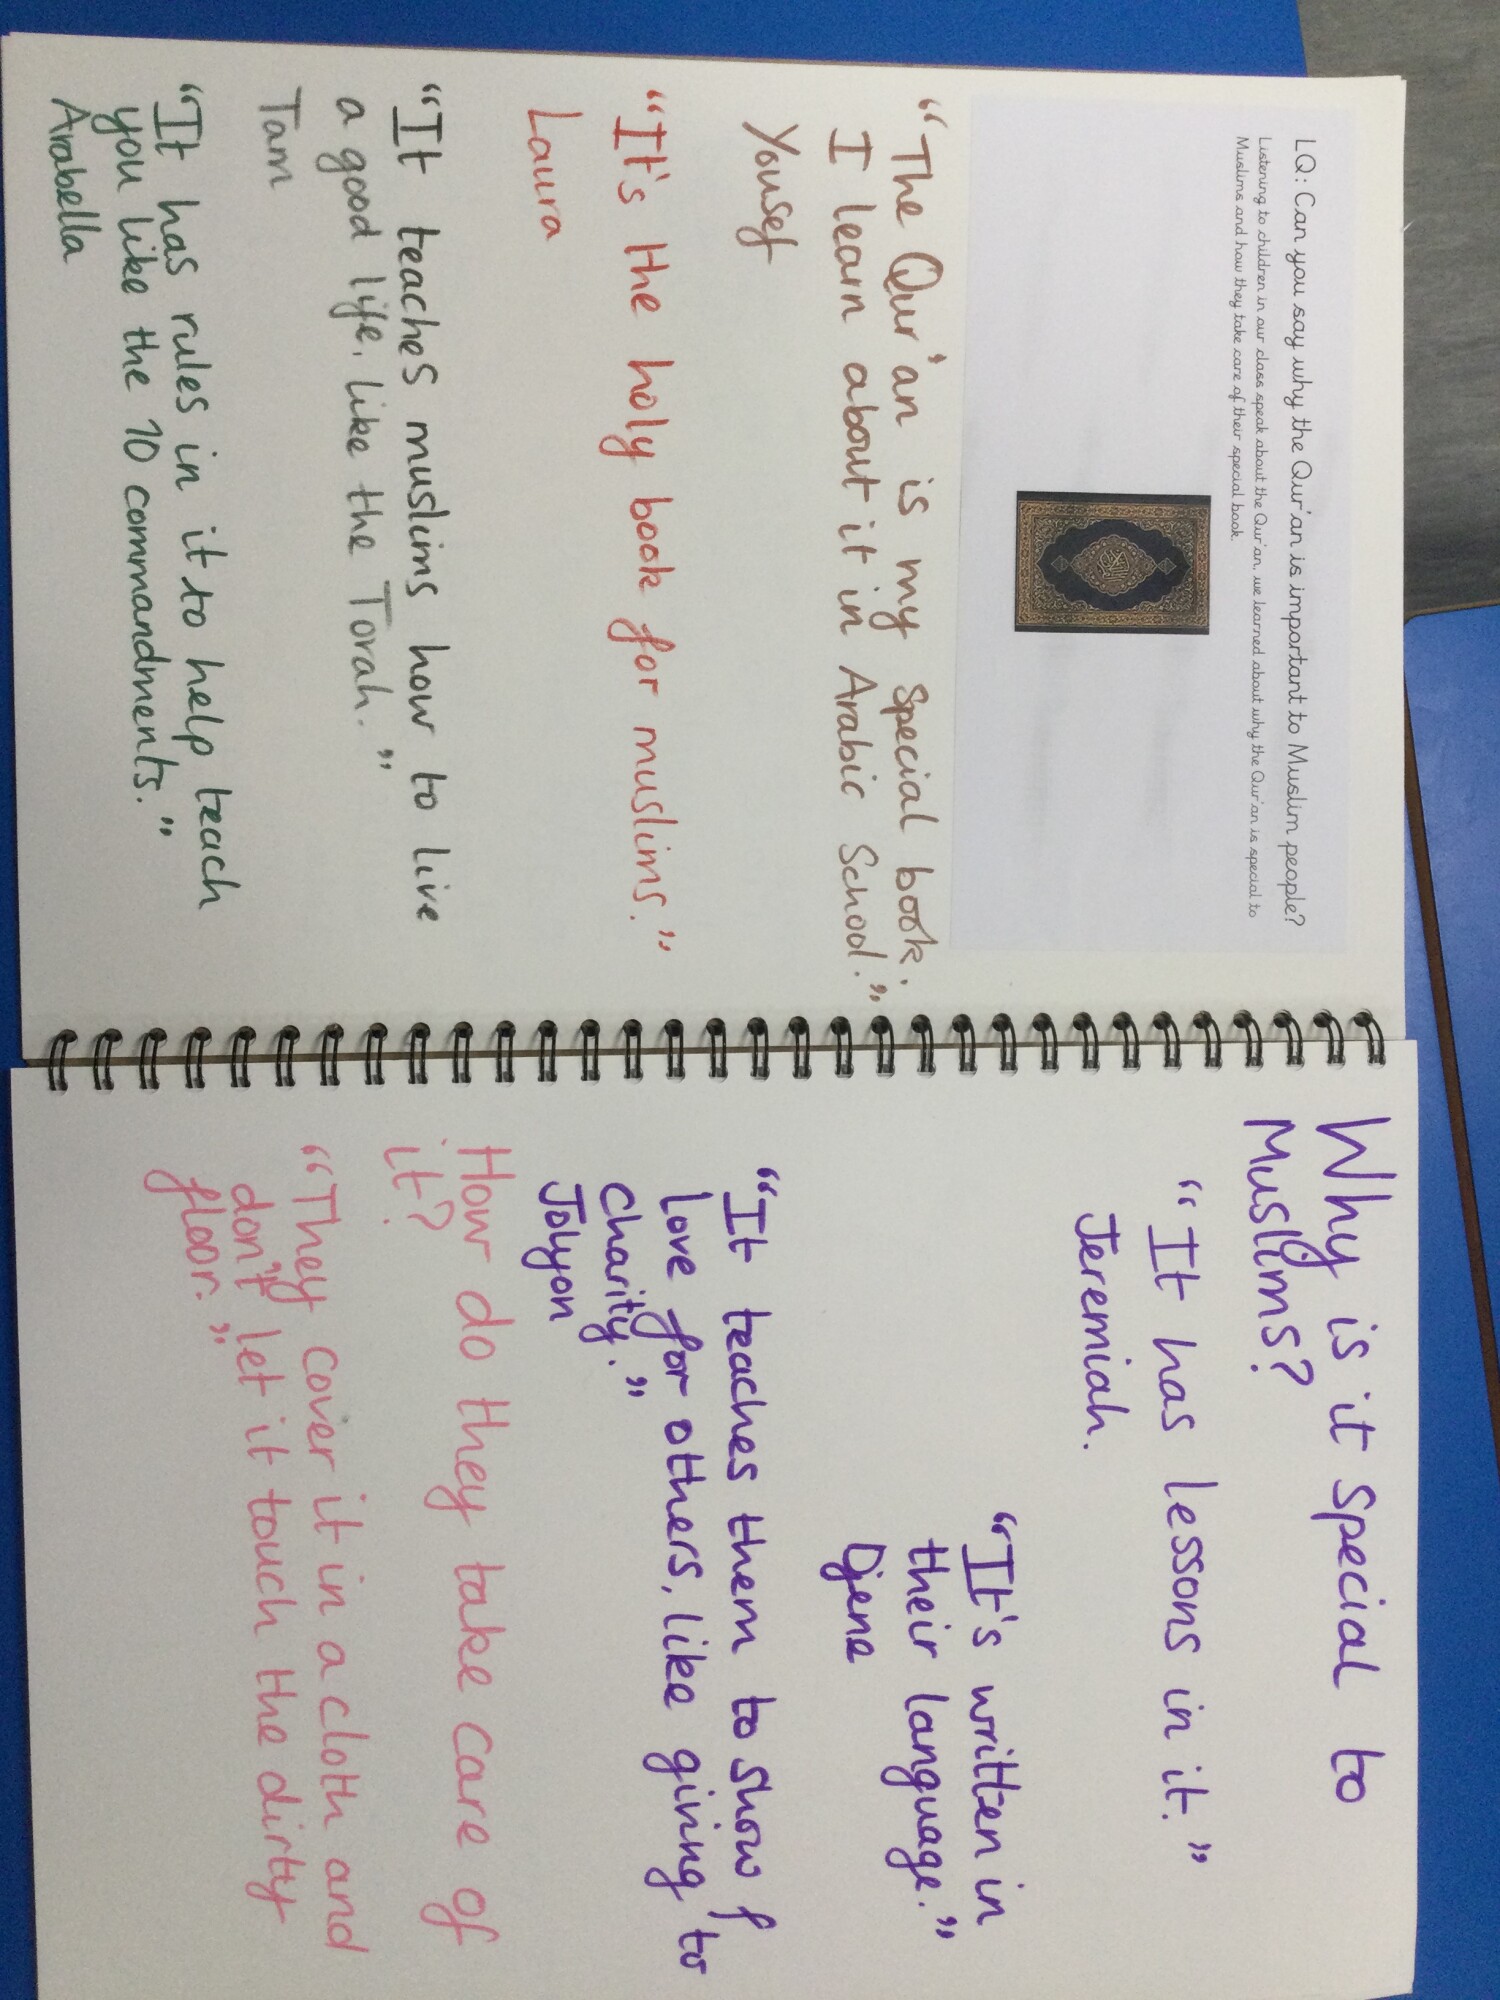 LQ: Can you say why the Qur'an is important to Muslim people?
Listening to children in our class speak about the Qur'an, we learned about why the Qur'an is special to
Muslims and how they take care of their special book.
"The Qur'an is my special book.
I learn about it in Arabic School."
Yousef
"It's the holy book for muslims."
Laura
"It teaches muslims how to live
a good life, like the Torah."
Tam
"It has rules in it to help teach
you like the 10 commandments."
Arabella
Why is it special to
Muslims?
"It has lessons in it."
Jeremiah.
"It's written in
their language."
Djene
"It teaches them to show
love for others, like giving to
charity."
Jolyon
How do they take care of
it?
"They cover it in a cloth and
don't let it touch the dirty
floor."